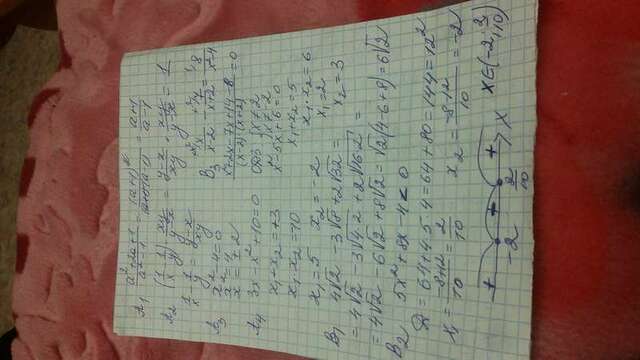 A₁ (a²+2a+1)/(a²-1) = (a+1)²/((a+1)(a-1)) = (a+1)/(a-1)
A₂ (1/x - 1/y) · xy/(y-x) = (y-x)/xy · xy/(y-x) = 1
1/x - 1/y = (y-x)/xy
A₃ x²-4=0
x²=4
x=±2
A₄ 3x-x²+10=0
x₁+x₂=+3
x₁·x₂=-10
x₁=5 x₂=-2
B₃ x/(x-2) - 7/(x+2) = 8/(x²-4)
(x²+2x-7x+14-8)/((x-2)(x+2)) = 0
ОДЗ x≠2
x≠-2
x²-5x+6=0
x₁+x₂=5
x₁·x₂=6
x₁=2
x₂=3
B₁ 4√2 - 3√8 + 2√32 =
= 4√2 - 3√4·2 + 2√16·2 =
= 4√2 - 6√2 + 8√2 = √2(4-6+8) = 6√2
B₂ 5x²+8x-4<0
Д = 64+4·5·4=64+80=144=12²
x₁ = (-8+12)/10 = 2/10 x₂ = (-8-12)/10 = -2
+ - + x
-2 2/10
x∈(-2; 2/10)